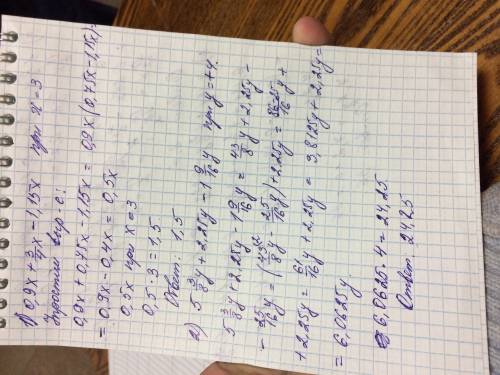 1) 0,9x + 3/4x - 1,15x при x = 3
Упростим выр-е:
0,9x + 0,75x - 1,15x = 0,9x (0,75x - 1,15x) =
= 0,9x - 0,4x = 0,5x
0,5x при x = 3
0,5 · 3 = 1,5
Ответ: 1,5
2) 5 3/8 y + 2,25y - 1 9/16 y при y = +4
5 3/8 y + 2,25y - 1 9/16 y = 43/8 y + 2,25y -
- 25/16 y = (43/8 y - 25/16 y) + 2,25y = 86-25/16 y +
+ 2,25y = 61/16 y + 2,25y = 3,8125y + 2,25y =
= 6,0625y.
6,0625 · 4 = 24,25
Ответ 24,25